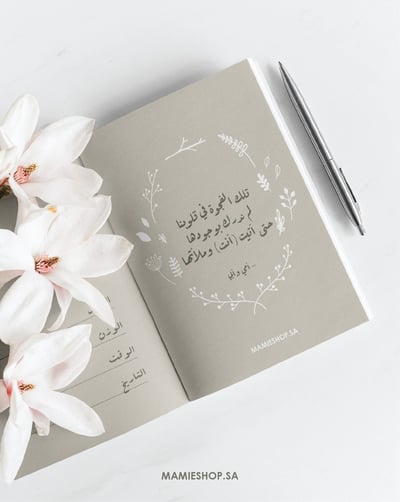 تلك الفجوة في قلوبنا
لم ندرك بوجودها
حتى أتيت (أنت) وملأتها
.. أمي وأبي
MAMIESHOP.SA
الوزن
الوقت
التاريخ
MAMIESHOP.SA